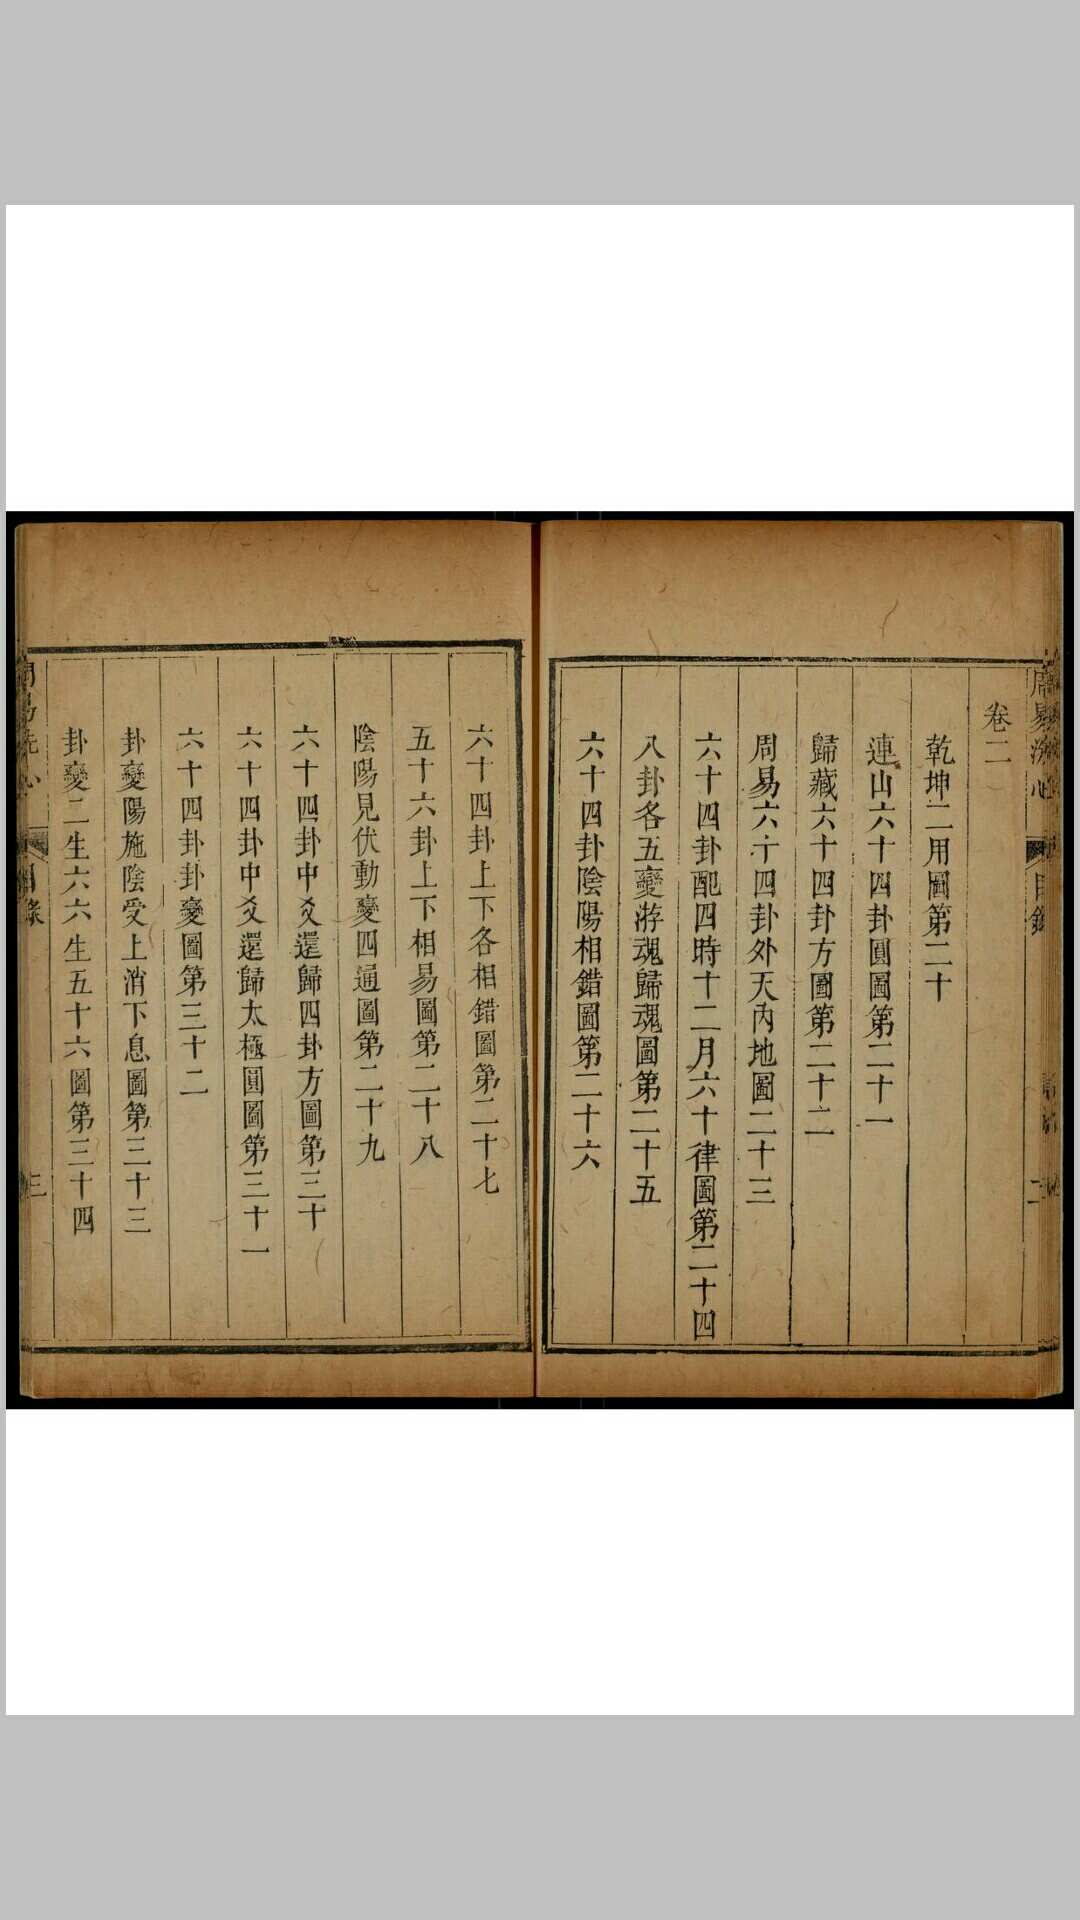 周易洗心
目錄
二
卷二
乾坤二用圖第二十
連山六十四卦圓圖第二十一
歸藏六十四卦方圖第二十二
周易六十四卦外天內地圖二十三
六十四卦配四時十二月六十律圖第二十四
八卦各五變游魂歸魂圖第二十五
六十四卦陰陽相錯圖第二十六
六十四卦上下各相錯圖第二十七
五十六卦上下相易圖第二十八
陰陽見伏動變四通圖第二十九
六十四卦中爻還歸四卦方圖第三十
六十四卦中爻還歸太極圓圖第三十一
六十四卦卦變圖第三十二
卦變陽施陰受上消下息圖第三十三
卦變二生六六生五十六圖第三十四
周易洗心
目錄
三